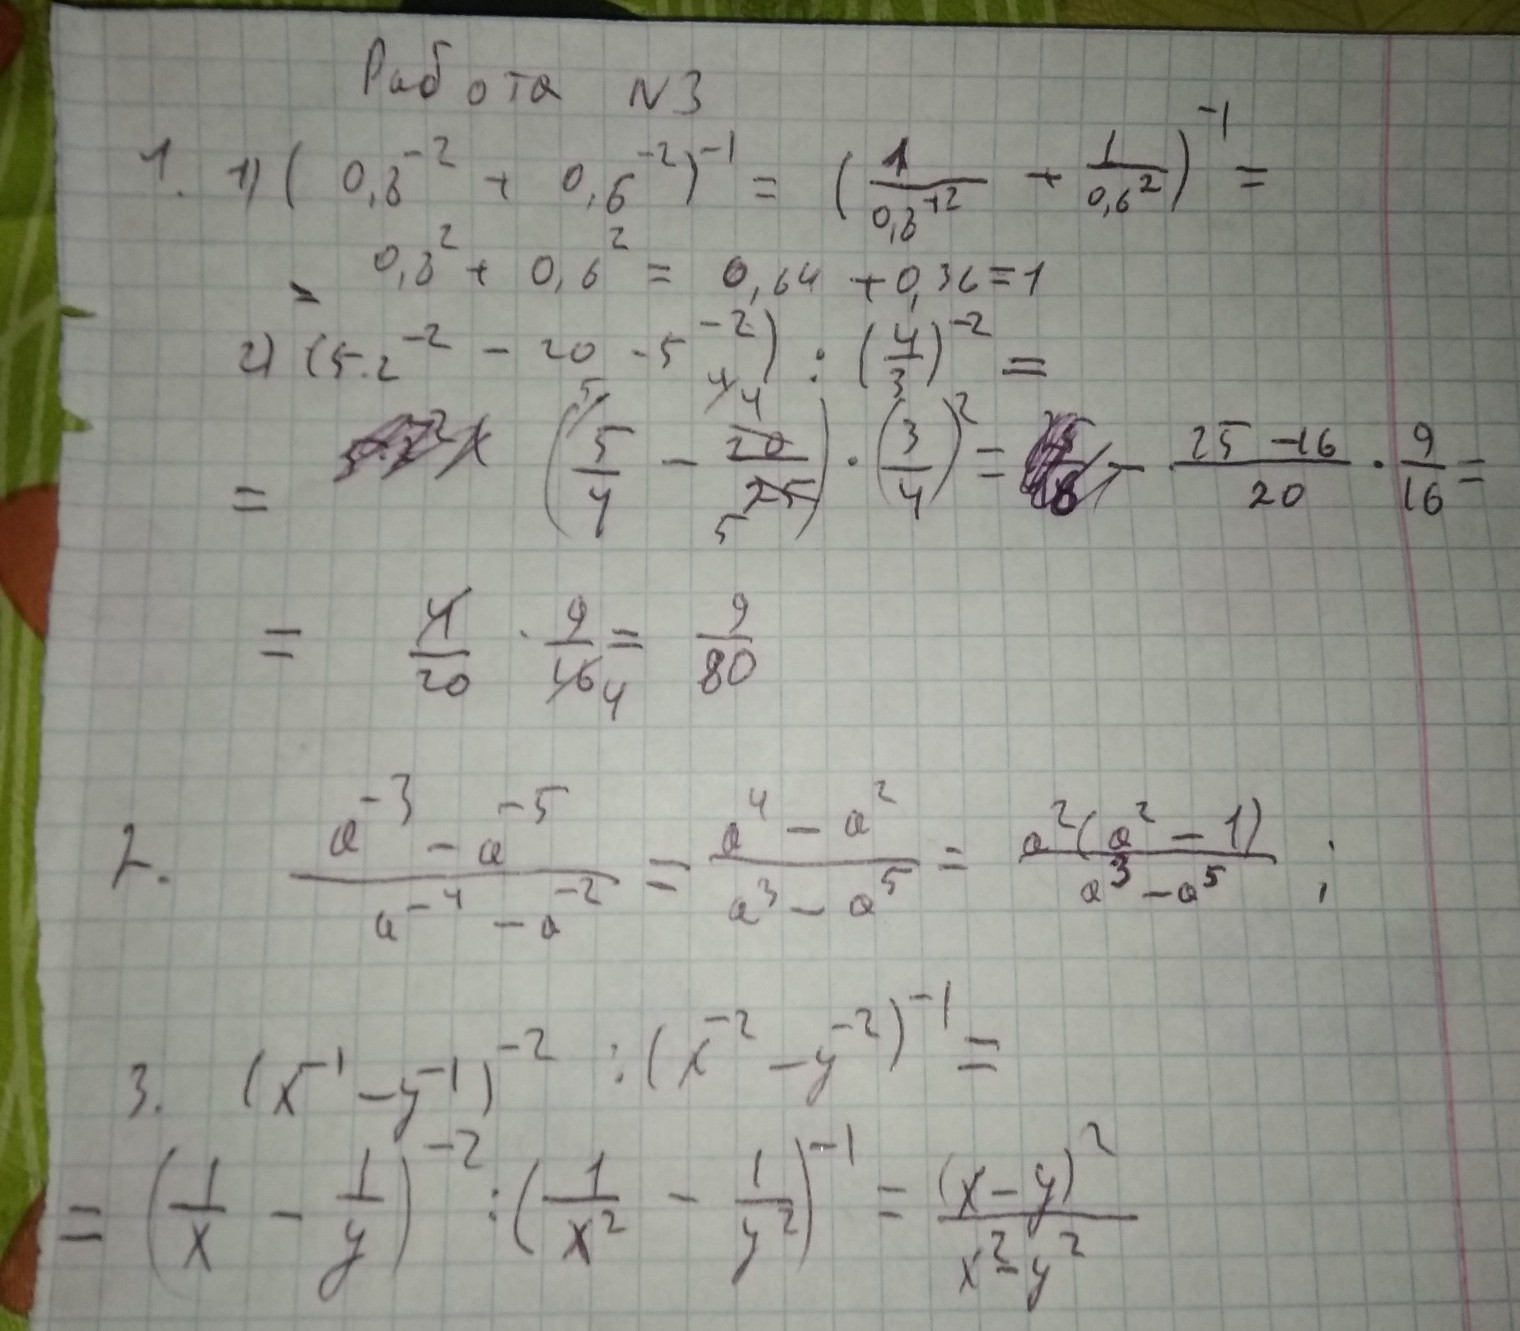 Работа N3
1. 1) (0,8^-2 + 0,6^-2)^-1 = (1/0,8^+2 + 1/0,6^2)^-1 =
= 0,8^2 + 0,6^2 = 0,64 + 0,36 = 1
2) (5·2^-2 - 20·5^-2) : (4/3)^-2 =
= (5/4 - 20/25) · (3/4)^2 = (25-16)/20 · 9/16 =
= 4/20 · 9/16 = 9/80
2. (a^-3 - a^-5)/(a^-4 - a^-2) = (a^4 - a^2)/(a^3 - a^5) = a^2(a^2 - 1)/(a^3 - a^5) ;
3. (x^-1 - y^-1)^-2 : (x^-2 - y^-2)^-1 =
= (1/x - 1/y)^-2 : (1/x^2 - 1/y^2)^-1 = (x-y)^2/(x^2-y^2)